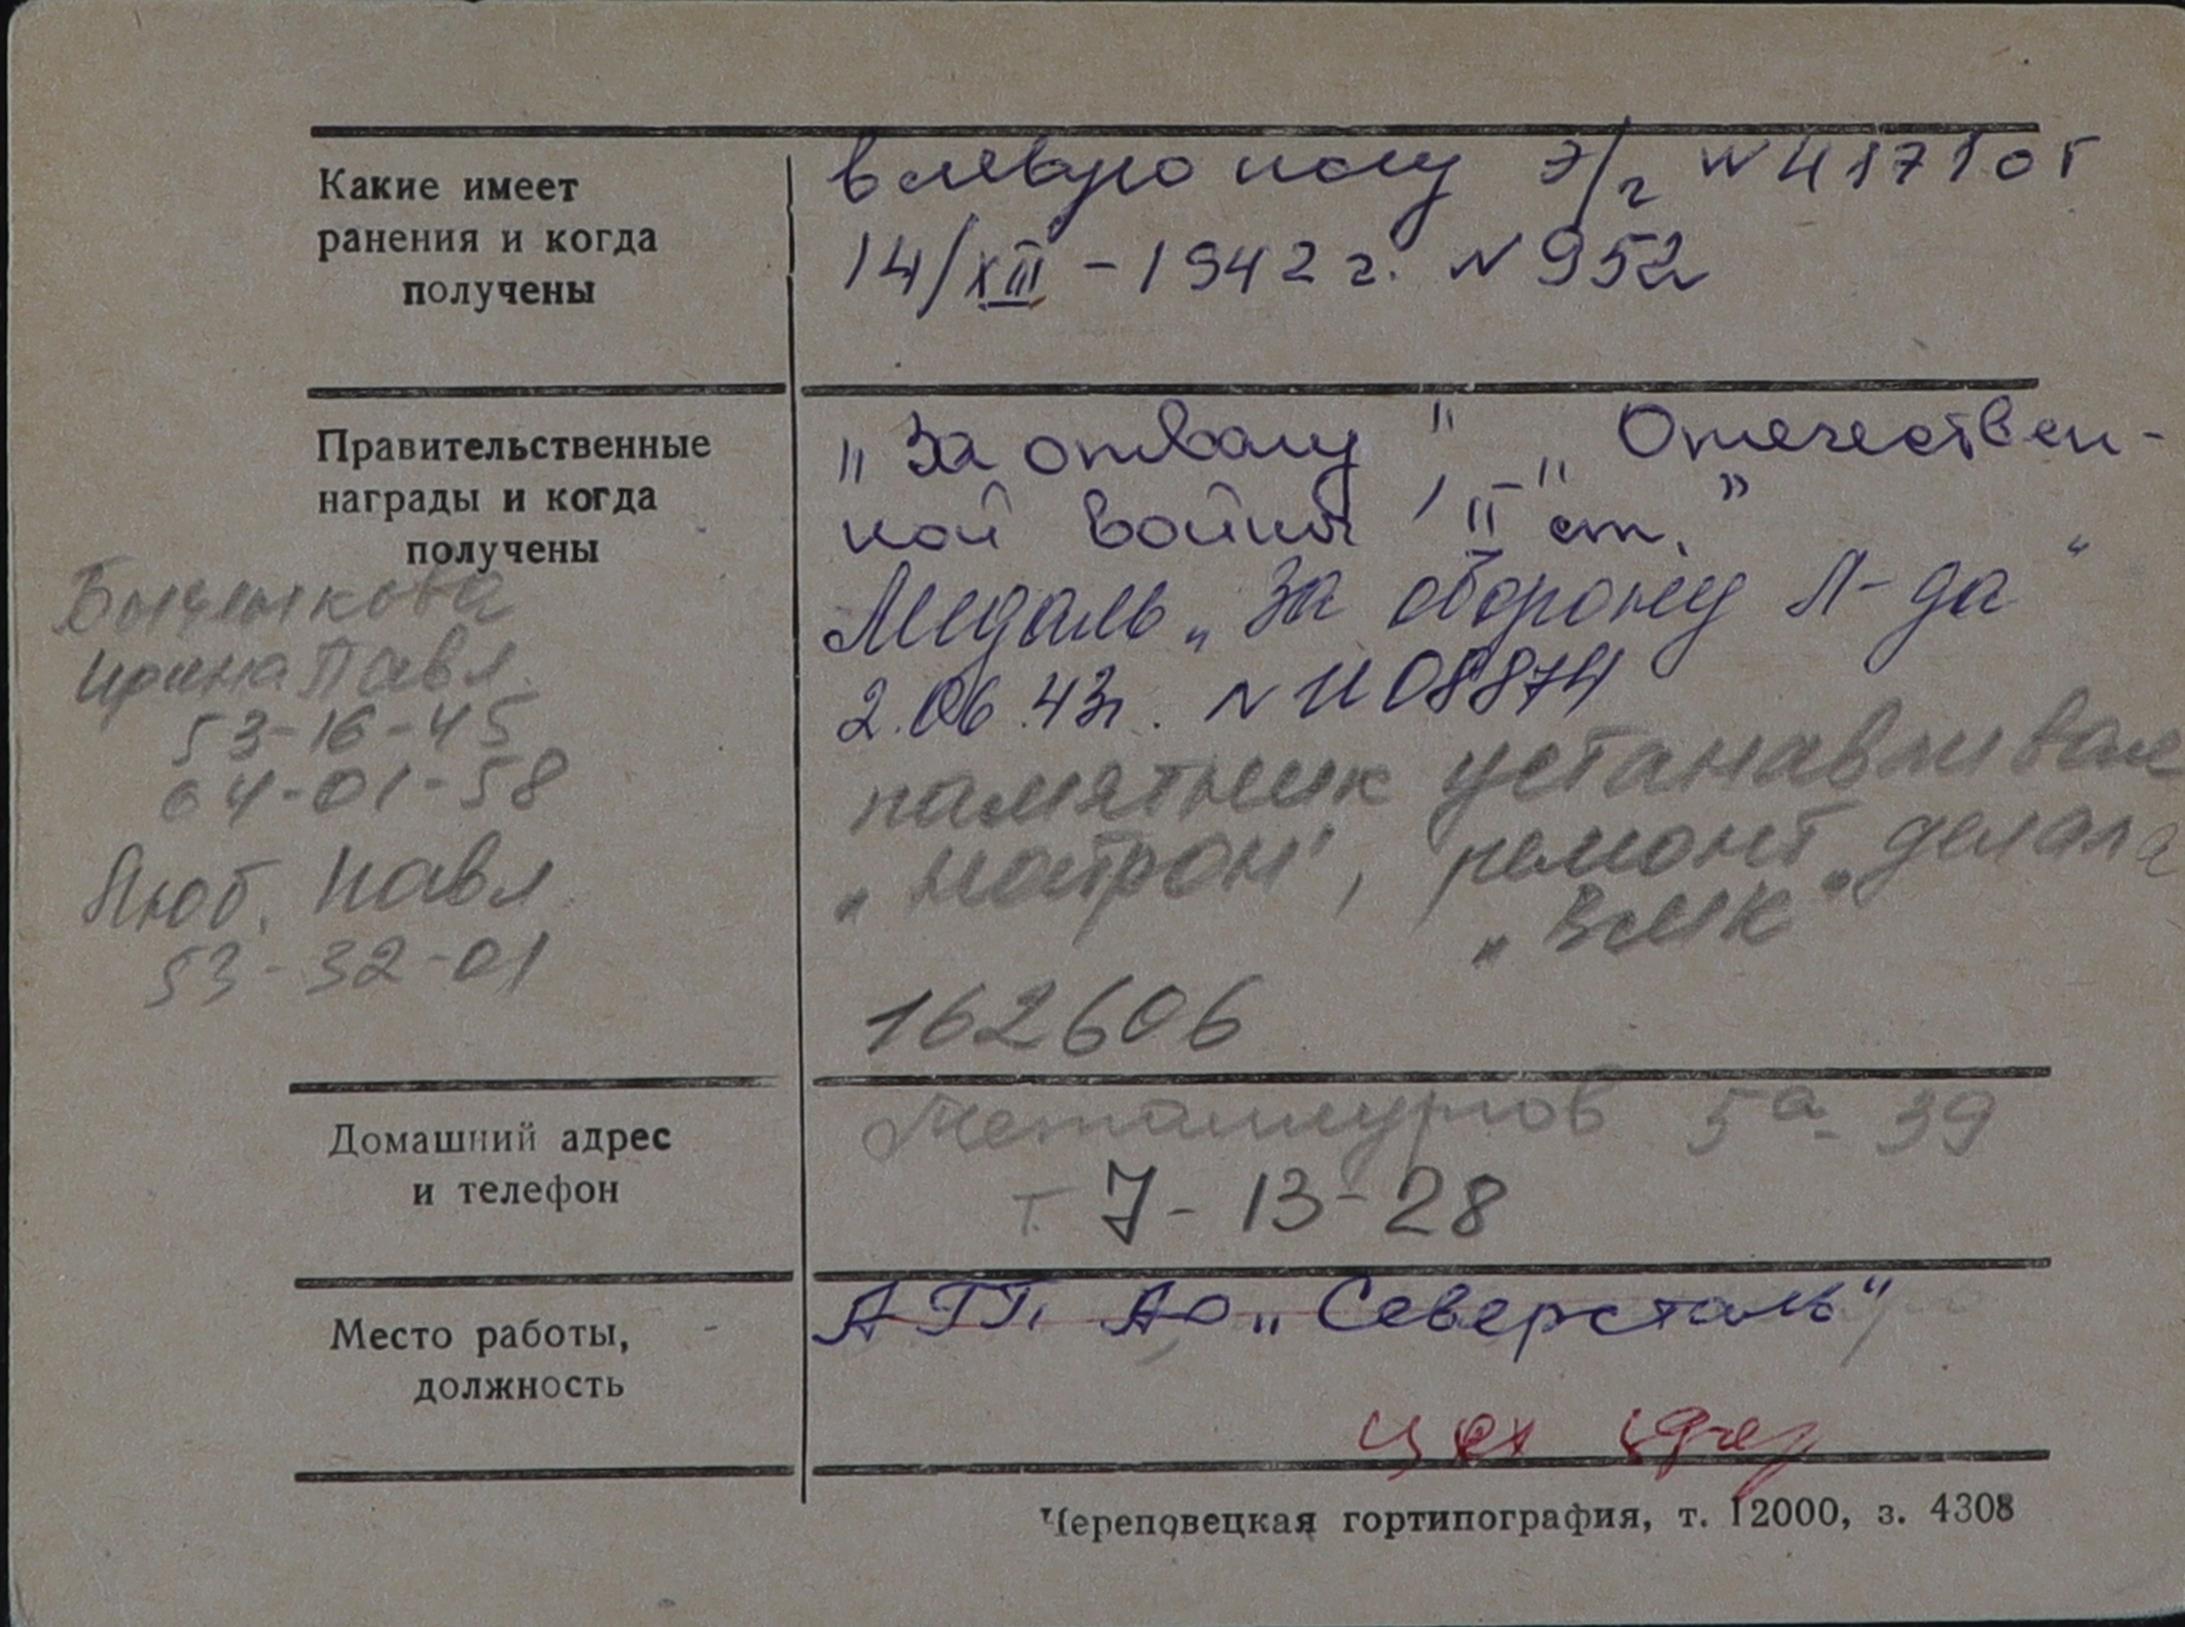 Какие имеет
ранения и когда
получены
в левую ногу э/г N 4171 от
14/XII - 1942 г. N 952
Правительственные
награды и когда
получены
„За отвагу", „Отечествен-
ной войны II ст."
Медаль „За оборону Л-да"
2.06.43г. N И 08874
памятник устанавливал
„Патрон", ремонт делала
„ВМК"
162606
Ирина Павл.
53-16-45
64-01-58
Люб. Павл
53-32-01
Домашний адрес
и телефон
Металлургов 5а- 39
т. 7-13-28
Место работы,
должность
АТП. АО „Северсталь"
цех
Череповецкая гортипография, т. 12000, з. 4308